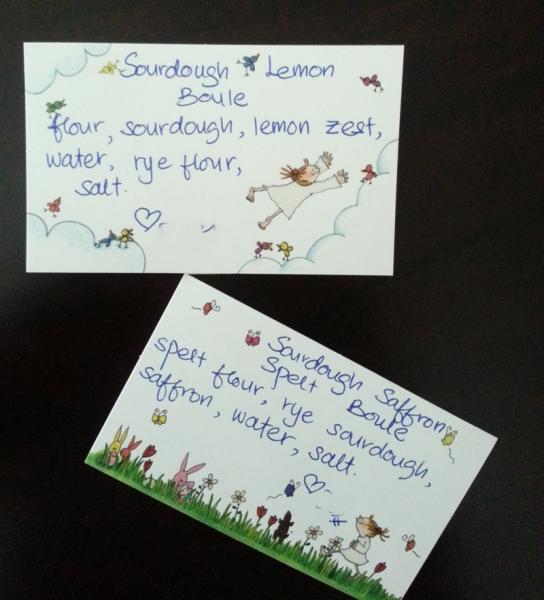 Sourdough Lemon
Boule
flour, sourdough, lemon zest,
water, rye flour,
salt.
Sourdough Saffron
Spelt Boule
spelt flour, rye sourdough,
saffron, water, salt.